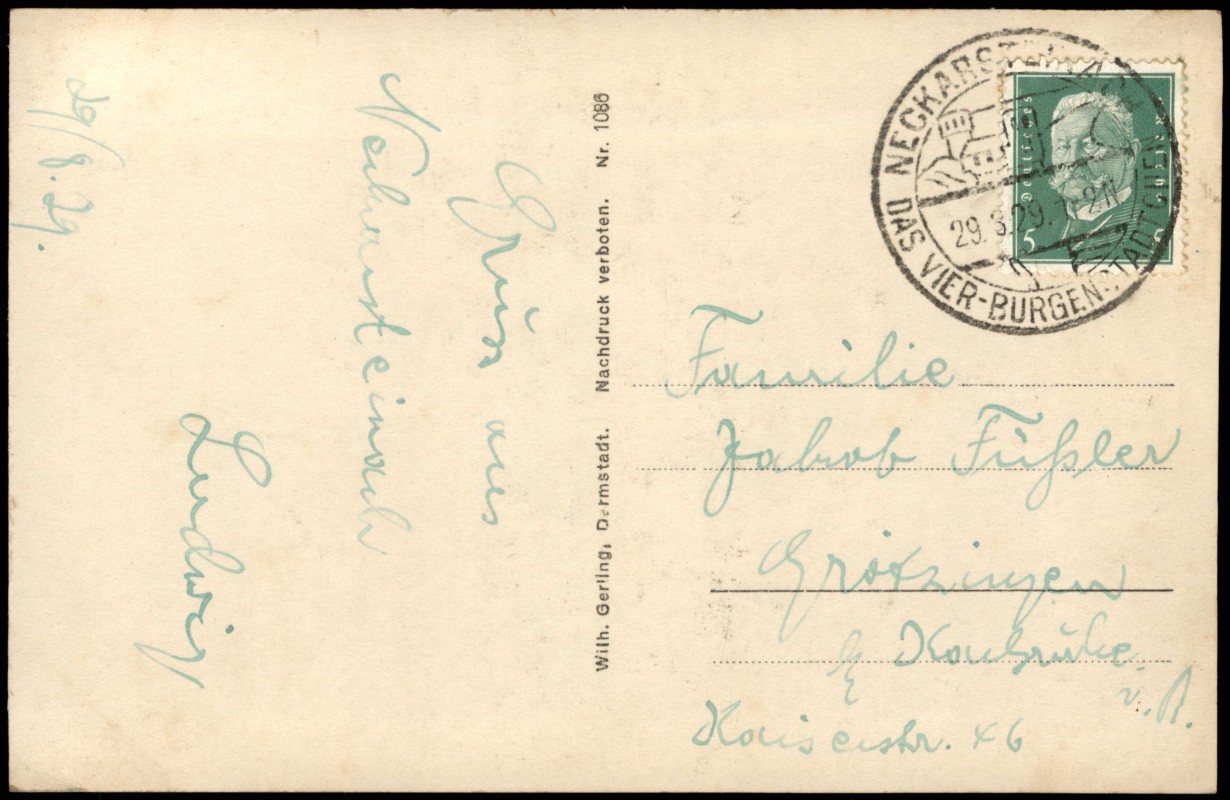 29/8.29.
Gruss aus
Neckarsteinach
Ludwig
Wilh. Gerling, Darmstadt. Nachdruck verboten. Nr. 1086
NECKARSTEINACH
DAS VIER-BURGENSTÄDTCHEN
29.8.29
Deutsches Reich
5
Familie
Jakob Füßler
Grötzingen
b/ Karlsruhe
v. R.
Kaiserstr. 46